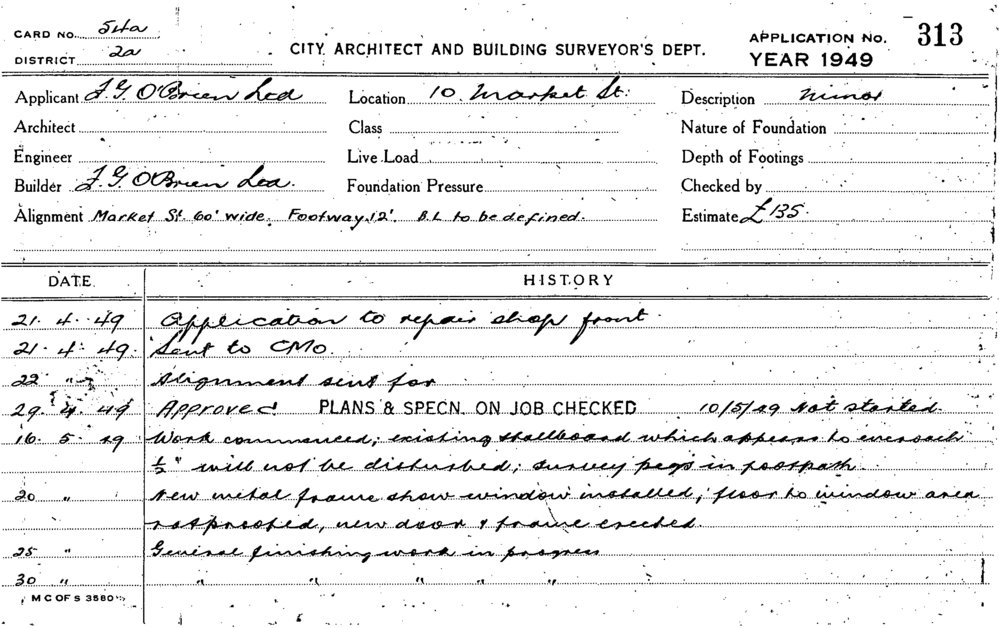 CARD NO. 54a
DISTRICT 2a
CITY ARCHITECT AND BUILDING SURVEYOR'S DEPT.
APPLICATION No. 313
YEAR 1949
Applicant F. G. O'Brien Ltd Location 10 Market St. Description Minor
Architect Class Nature of Foundation
Engineer Live Load Depth of Footings
Builder F. G. O'Brien Ltd. Foundation Pressure Checked by
Alignment Market St. 60' wide. Footway 12'. B.L to be defined. Estimate £135.
DATE. HISTORY
21. 4. 49 Application to repair shop front.
21. 4. 49. Sent to CMO.
22 " Alignment sent for
29. 4. 49 Approved PLANS & SPECN. ON JOB CHECKED 10/5/49 Not started.
16. 5. 49 Work commenced; existing stallboard which appears to encroach
½" will not be disturbed; survey pegs in footpath.
20 " New metal frame show window installed; floor to window area
ratproofed, new door & frame erected.
25 " General finishing work in progress
30 " " " " " "
M C OF S 3580